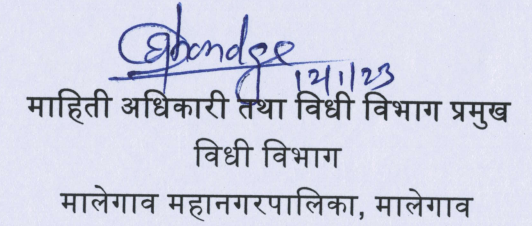 12/1/23
माहिती अधिकारी तथा विधी विभाग प्रमुख
विधी विभाग
मालेगाव महानगरपालिका, मालेगाव